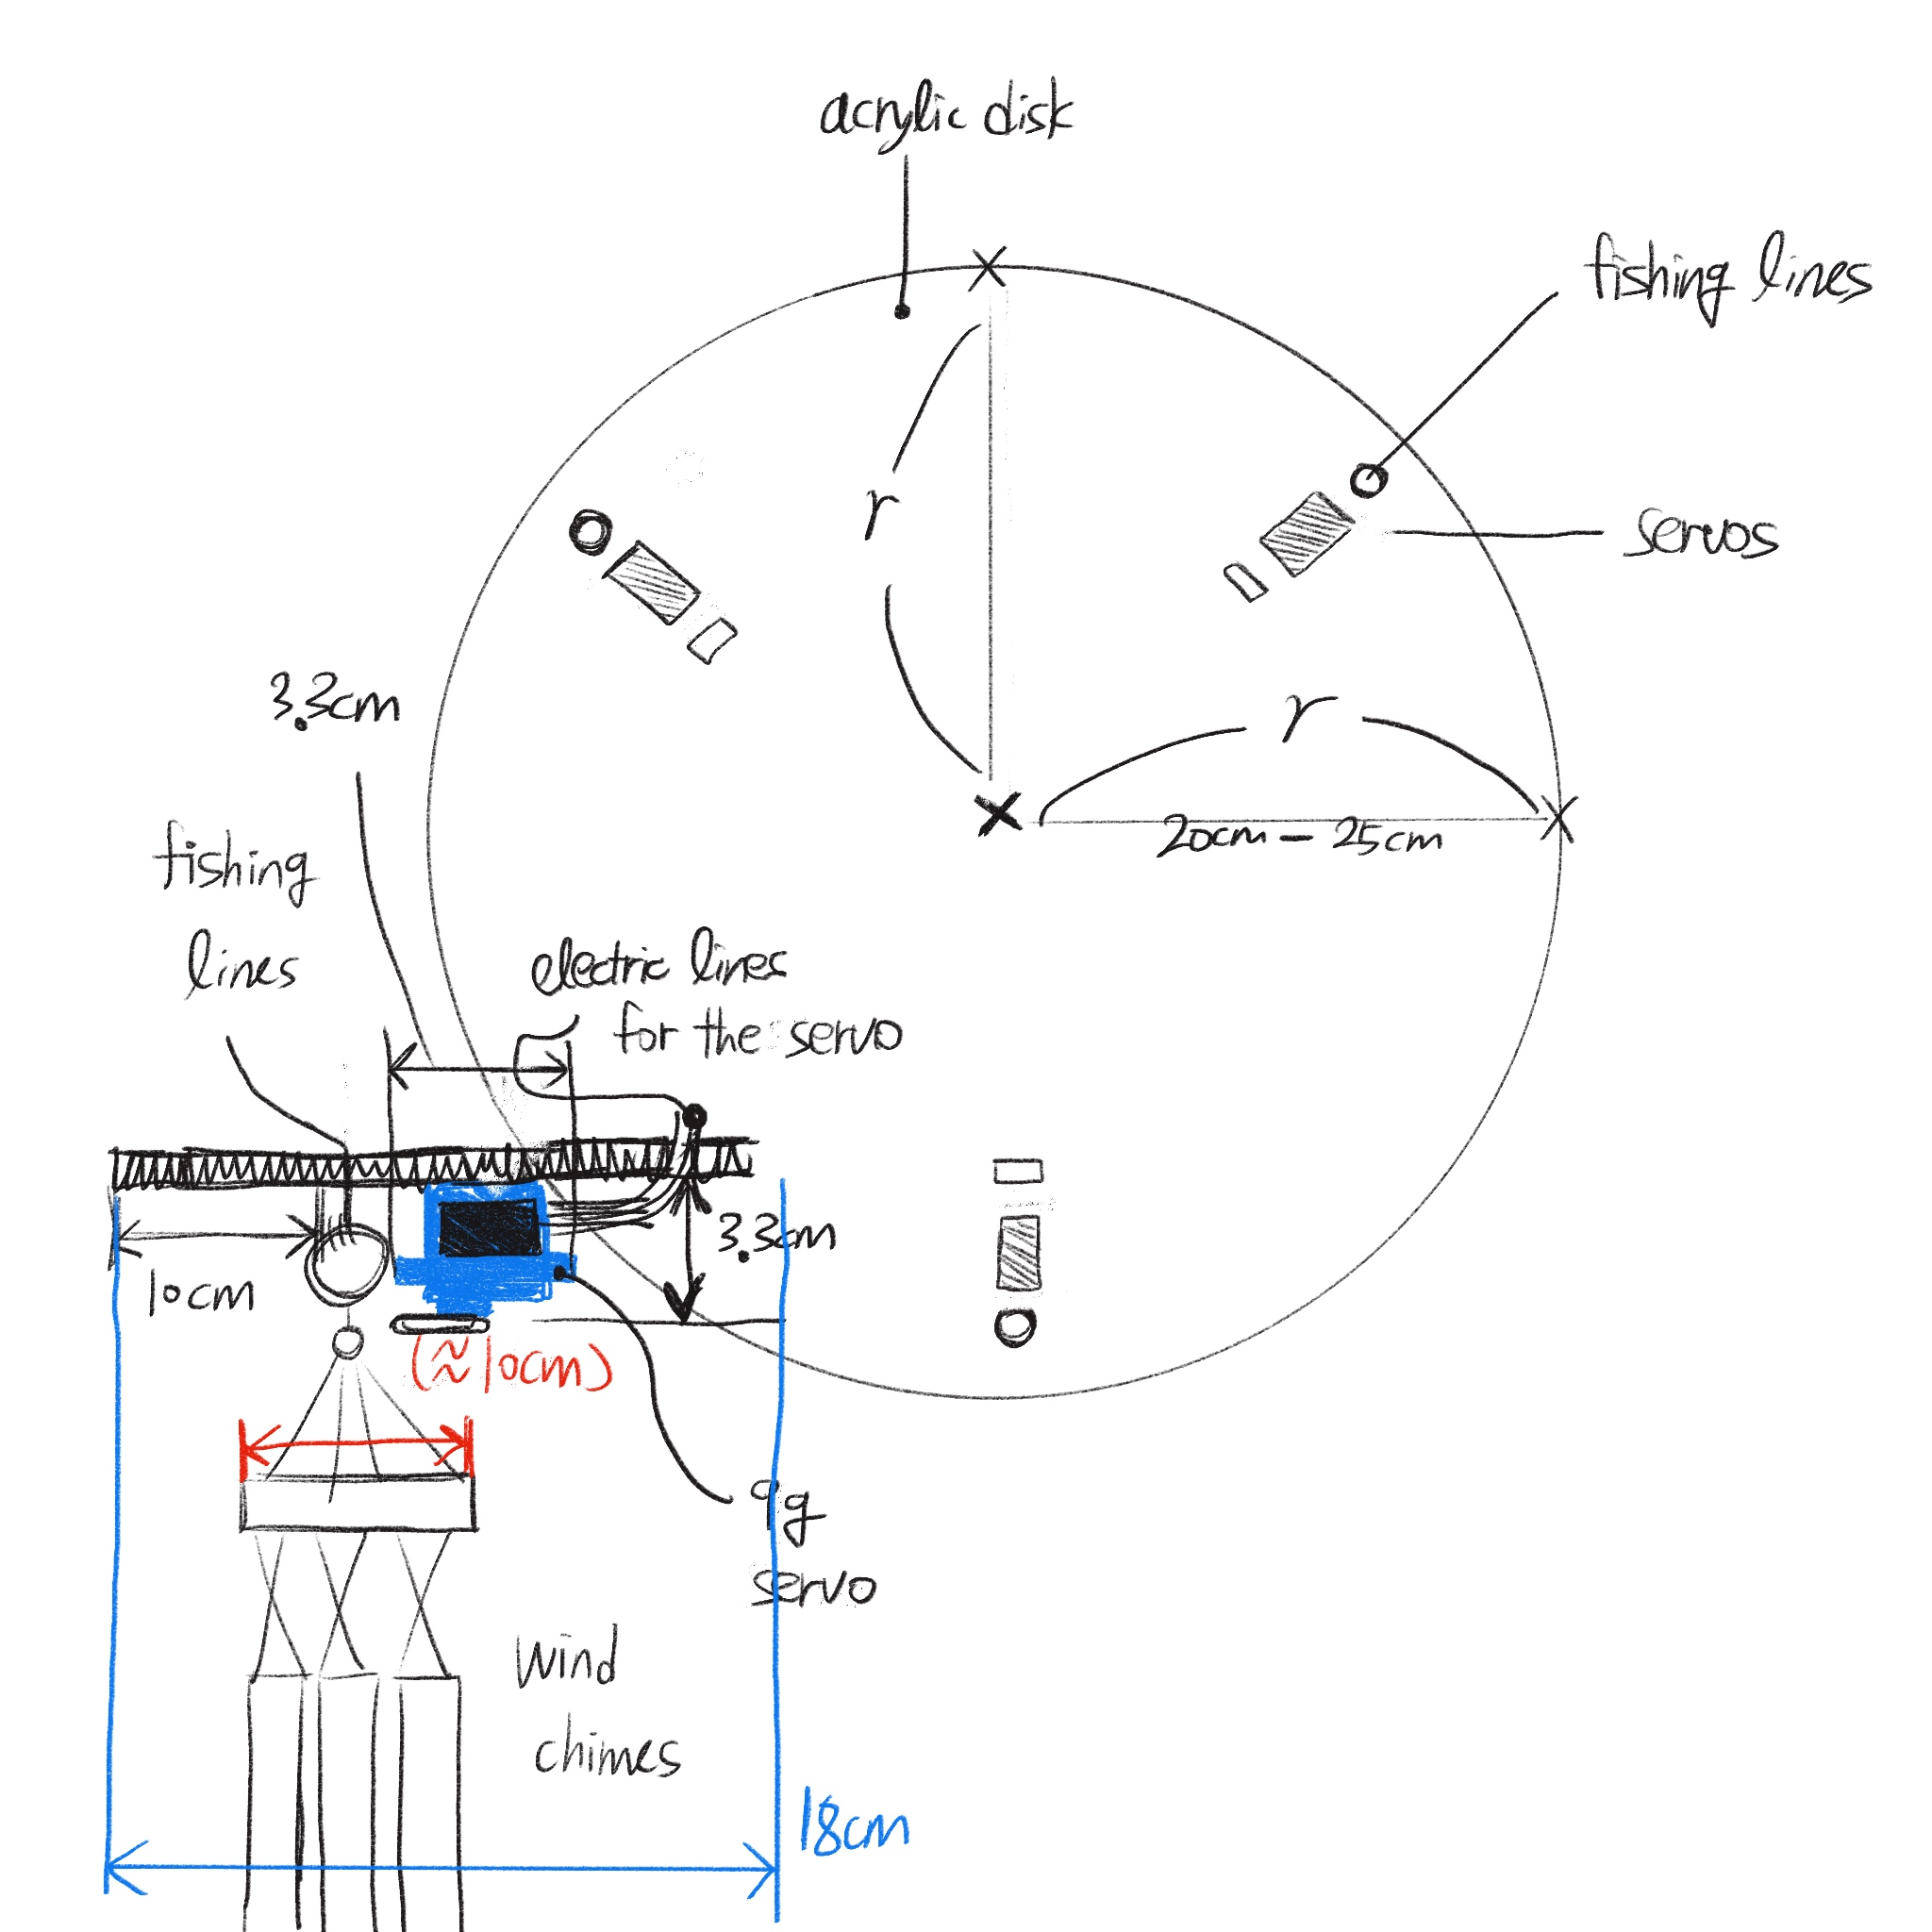 acrylic disk
fishing lines
servos
r
r
20cm - 25cm
3.3cm
fishing
lines
electric lines
for the servo
10cm
3.3cm
(≈10cm)
9g
servo
wind
chimes
18cm